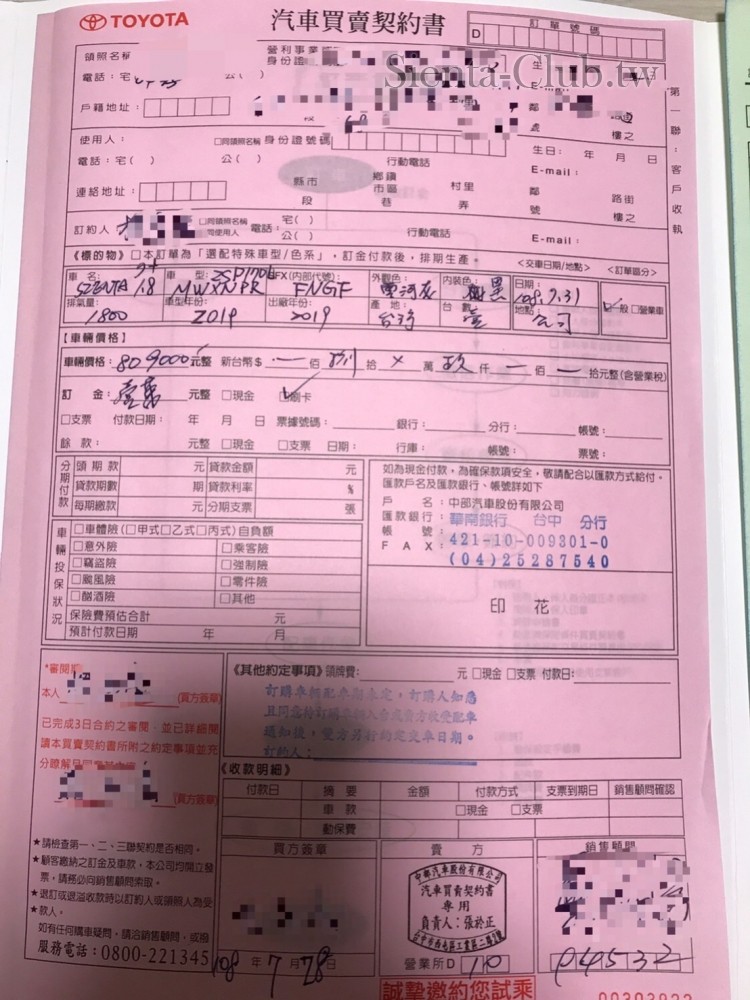 TOYOTA
汽車買賣契約書
訂單號碼
D
Sienta-Club.tw
領照名稱
營利事業
身份證
生
日
電話：宅
公( )
E-mail：
戶籍地址：
段
鄰
號
樓之
第一聯：客戶收執
使用人：
□同領照名稱 身份證號碼
生日： 年 月 日
電話：宅( )
公( )
行動電話
E-mail：
連絡地址：
縣市 鄉鎮市區 村里 鄰 路街
段 巷 弄 號 樓之
訂約人
□同領照名稱
□同使用人
電話： 宅( )
公( )
行動電話
E-mail：
《標的物》□本訂單為「選配特殊車型/色系」，訂金付款後，排期生產。
<交車日期/地點>
<訂單區分>
車名： SIENTA 1.8
車型： ZSP170L
MWXNPR
SFX(內部代號)： FNGF
外觀色：
內裝色：
日期： 108.7.31
地點： 公司
一般 □營業車
排氣量： 1800
車型年份： 2019
出廠年份： 2019
產地： 台灣
台數： 壹
【車輛價格】
車輛價格：809000元整 新台幣$ 一 佰 捌 拾 × 萬 玖 仟 一 佰 一 拾元整(含營業稅)
訂金： 壹萬 元整 □現金 ☑刷卡
□支票 付款日期： 年 月 日 票據號碼： 銀行： 分行： 帳號：
餘款： 元整 □現金 □支票 日期： 行庫： 帳號： 票號：
分期付款
頭期款 元 貸款金額 元
貸款期數 期 貸款利率 %
每期繳款 元 分期支票 張
如為現金付款，為確保款項安全，敬請配合以匯款方式給付。
匯款戶名及匯款銀行、帳號詳如下
戶名：中部汽車股份有限公司
匯款銀行：華南銀行 台中 分行
帳號：421-10-009801-0
FAX：(04)25287540
印花
車輛投保狀況
□車體險(□甲式□乙式□丙式)自負額
□意外險 □乘客險
□竊盜險 □強制險
□颱風險 □零件險
□酗酒險 □其他
保險費預估合計 元
預計付款日期 年 月
*審閱期
本人
(買方簽章)
已完成3日合約之審閱，並已詳細閱
讀本買賣契約書所附之約定事項並充
(買方簽章)
《其他約定事項》領牌費： 元 □現金 □支票 付款日：
訂購車輛配車期未定，訂購人知悉
且同意於訂購車輛入台或賣方收受配車
通知後，雙方另行約定交車日期。
訂約人：
《收款明細》
付款日 摘要 金額 付款方式 支票到期日 銷售顧問確認
車款 □現金 □支票
動保費
★請檢查第一、二、三聯契約是否相同。
★顧客繳納之訂金及車款，本公司均開立發
票，請務必向銷售顧問索取。
★退訂或退溢收款時以訂約人或領照人為受
款人。
★如有任何購車疑問，請洽銷售顧問，或撥
服務電話：0800-221345
買方簽章
賣方
銷售顧問
中部汽車股份有限公司
汽車買賣契約書
專用
負責人：張於正
營業所D 10
108年7月28日
誠摯邀約您試乘